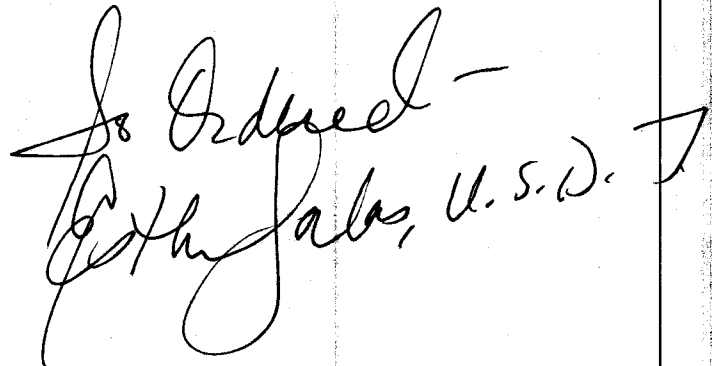 So Ordered —
Esther Salas, U.S.D.J